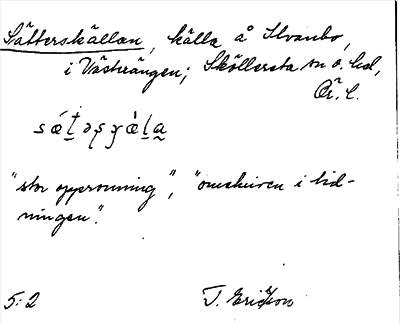 Sätterskällan, källa å Ilvanbo,
i Västrängen; Sköllersta sn o. hd,
Ör. l.
"stor opprinning", "omskriven i tid-
ningen".
5:2 T. Ericson